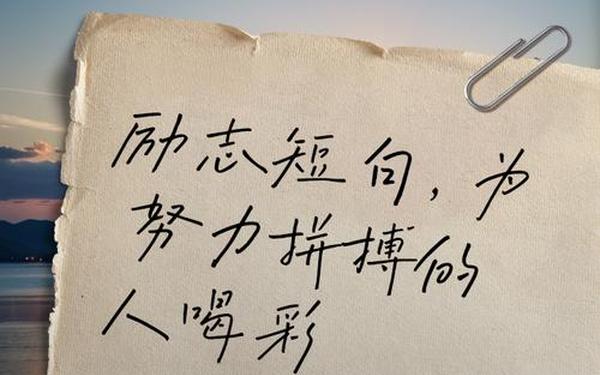 励志短句，为
努力拼搏的
人喝彩